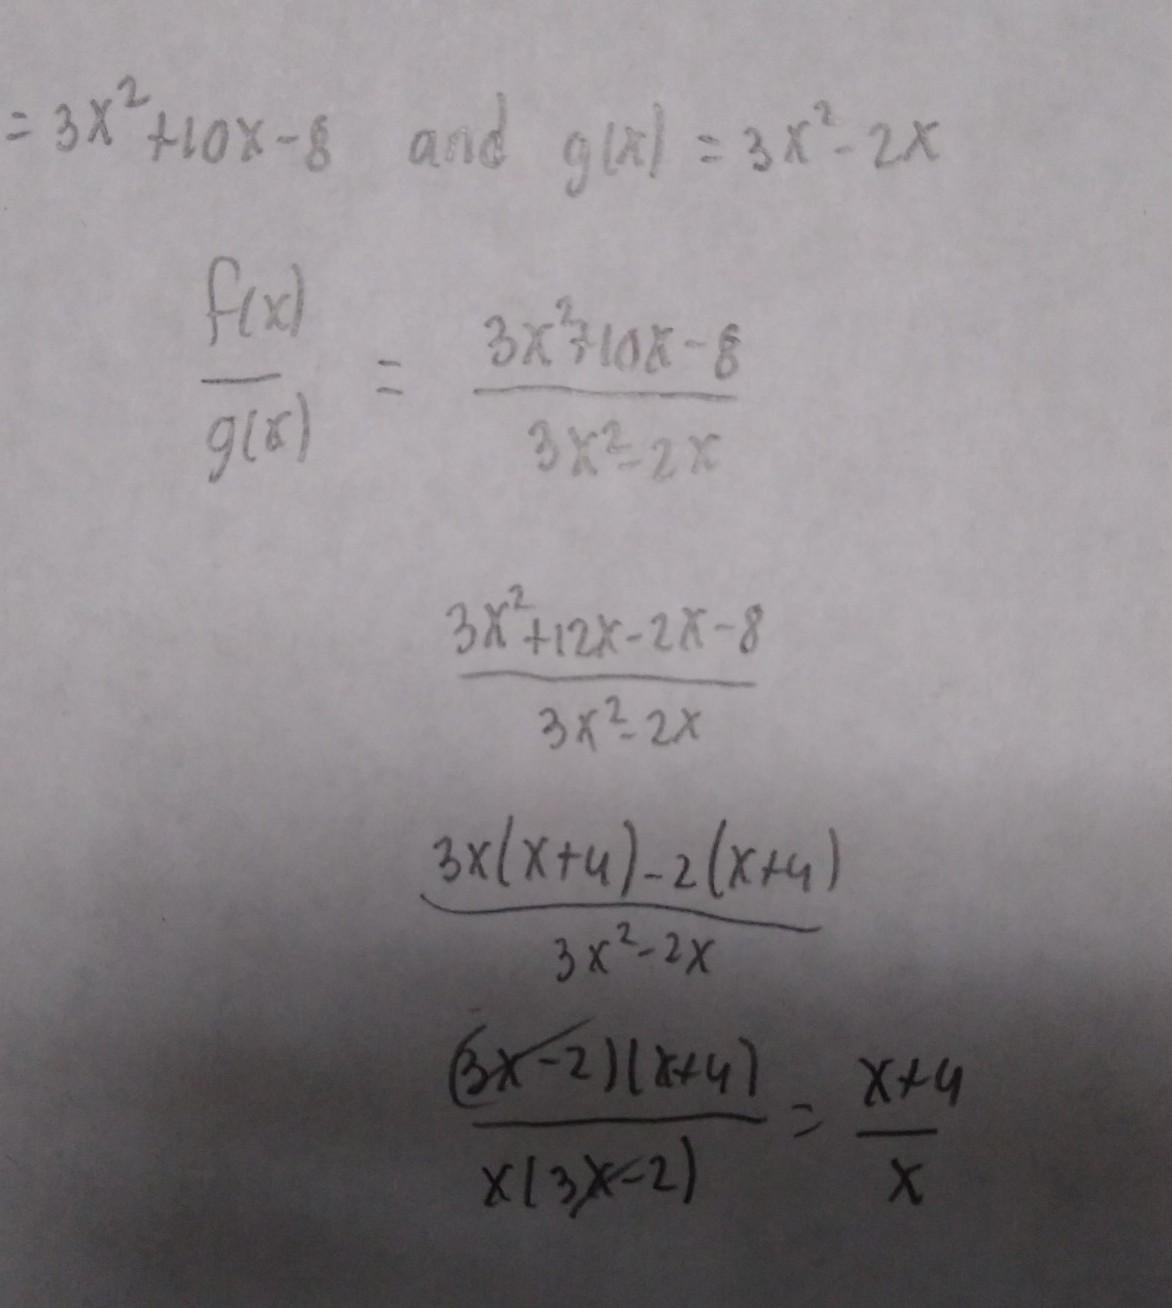 = 3x²+10x-8 and g(x) = 3x²-2x
f(x)/g(x) = (3x²+10x-8)/(3x²-2x)
(3x²+12x-2x-8)/(3x²-2x)
(3x(x+4)-2(x+4))/(3x²-2x)
((3x-2)(x+4))/(x(3x-2)) = (x+4)/x